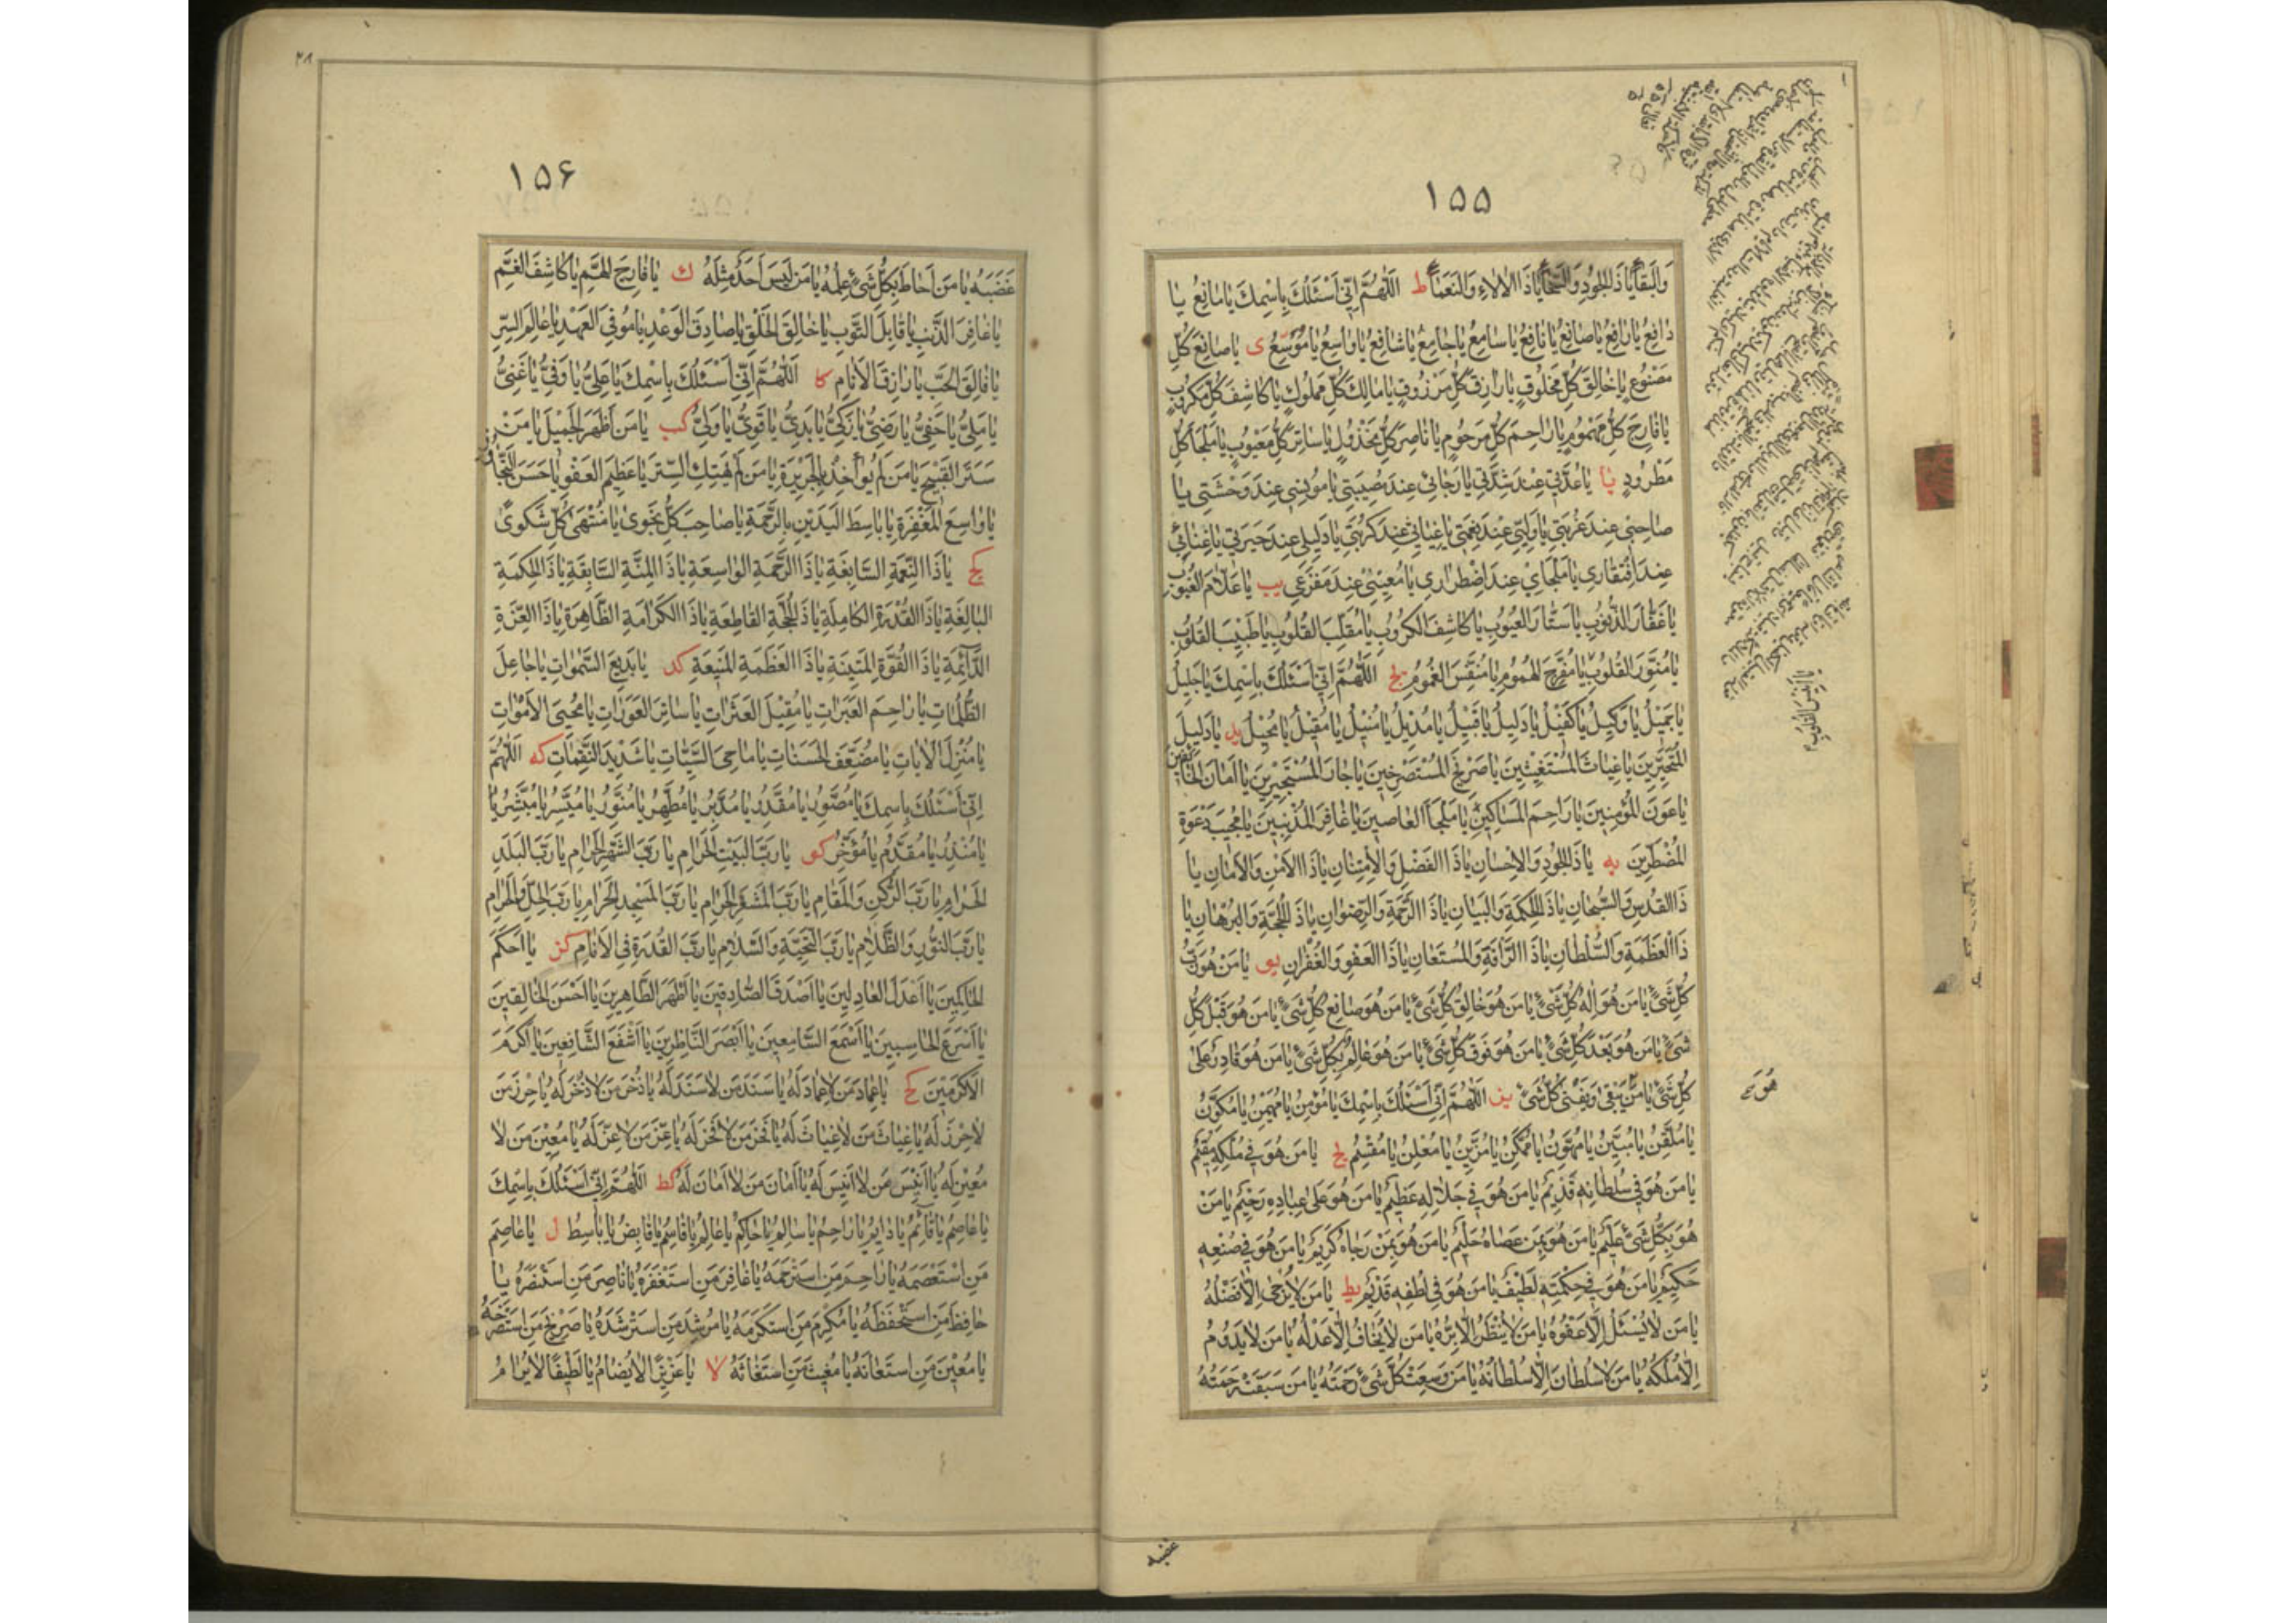 ۱۵۵
وَالْبَقَاءِ يَا ذَا الْجُودِ وَالسَّخَاءِ يَا ذَا الْآلَاءِ وَالنَّعْمَاءِ ط اَللّٰهُمَّ اِنّى اَسْئَلُكَ بِاسْمِكَ يَا مَانِعُ يَا
دَافِعُ يَا رَافِعُ يَا صَانِعُ يَا نَافِعُ يَا سَامِعُ يَا جَامِعُ يَا شَافِعُ يَا وَاسِعُ يَا مُوَسِّعُ ى يَا صَانِعَ كُلِّ
مَصْنُوعٍ يَا خَالِقَ كُلِّ مَخْلُوقٍ يَا رَازِقَ كُلِّ مَرْزُوقٍ يَا مَالِكَ كُلِّ مَمْلُوكٍ يَا كَاشِفَ كُلِّ مَكْرُوبٍ
يَا فَارِجَ كُلِّ مَهْمُومٍ يَا رَاحِمَ كُلِّ مَرْحُومٍ يَا نَاصِرَ كُلِّ مَخْذُولٍ يَا سَاتِرَ كُلِّ مَعْيُوبٍ يَا مَلْجَاَ كُلِّ
مَطْرُودٍ يا يَا عُدَّتى عِنْدَ شِدَّتى يَا رَجَائى عِنْدَ مُصِيبَتى يَا مُونِسى عِنْدَ وَحْشَتى يَا
صَاحِبى عِنْدَ غُرْبَتى يَا وَلِيّى عِنْدَ نِعْمَتى يَا غِيَاثى عِنْدَ كُرْبَتى يَا دَلِيلى عِنْدَ حَيْرَتى يَا غِنَائى
عِنْدَ افْتِقَارى يَا مَلْجَاى عِنْدَ اضْطِرَارى يَا مُعِينى عِنْدَ مَفْزَعى يب يَا عَلَّامَ الْغُيُوبِ
يَا غَفَّارَ الذُّنُوبِ يَا سَتَّارَ الْعُيُوبِ يَا كَاشِفَ الْكُرُوبِ يَا مُقَلِّبَ الْقُلُوبِ يَا طَبِيبَ الْقُلُوبِ
يَا مُنَوِّرَ الْقُلُوبِ يَا مُفَرِّجَ الْهُمُومِ يَا مُنَفِّسَ الْغُمُومِ يج اَللّٰهُمَّ اِنّى اَسْئَلُكَ بِاسْمِكَ يَا جَلِيلُ
يَا جَمِيلُ يَا وَكِيلُ يَا كَفِيلُ يَا دَلِيلُ يَا قَبِيلُ يَا مُدِيلُ يَا مُنِيلُ يَا مُقِيلُ يَا مُحِيلُ يد يَا دَلِيلَ
الْمُتَحَيِّرِينَ يَا غِيَاثَ الْمُسْتَغِيثِينَ يَا صَرِيخَ الْمُسْتَصْرِخِينَ يَا جَارَ الْمُسْتَجِيرِينَ يَا اَمَانَ الْخَائِفِينَ
يَا عَوْنَ الْمُؤْمِنِينَ يَا رَاحِمَ الْمَسَاكِينِ يَا مَلْجَاَ الْعَاصِينَ يَا غَافِرَ الْمُذْنِبِينَ يَا مُجِيبَ دَعْوَةِ
الْمُضْطَرِّينَ يه يَا ذَا الْجُودِ وَالْاِحْسَانِ يَا ذَا الْفَضْلِ وَالْاِمْتِنَانِ يَا ذَا الْاَمْنِ وَالْاَمَانِ يَا
ذَا الْقُدْسِ وَالسُّبْحَانِ يَا ذَا الْحِكْمَةِ وَالْبَيَانِ يَا ذَا الرَّحْمَةِ وَالرِّضْوَانِ يَا ذَا الْحُجَّةِ وَالْبُرْهَانِ يَا
ذَا الْعَظَمَةِ وَالسُّلْطَانِ يَا ذَا الرَّاْفَةِ وَالْمُسْتَعَانِ يَا ذَا الْعَفْوِ وَالْغُفْرَانِ يو يَا مَنْ هُوَ رَبُّ
كُلِّ شَىْءٍ يَا مَنْ هُوَ اِلٰهُ كُلِّ شَىْءٍ يَا مَنْ هُوَ خَالِقُ كُلِّ شَىْءٍ يَا مَنْ هُوَ صَانِعُ كُلِّ شَىْءٍ يَا مَنْ هُوَ قَبْلَ كُلِّ
شَىْءٍ يَا مَنْ هُوَ بَعْدَ كُلِّ شَىْءٍ يَا مَنْ هُوَ فَوْقَ كُلِّ شَىْءٍ يَا مَنْ هُوَ عَالِمٌ بِكُلِّ شَىْءٍ يَا مَنْ هُوَ قَادِرٌ عَلٰى
كُلِّ شَىْءٍ يَا مَنْ يَبْقٰى وَيَفْنٰى كُلُّ شَىْءٍ يز اَللّٰهُمَّ اِنّى اَسْئَلُكَ بِاسْمِكَ يَا مُؤْمِنُ يَا مُهَيْمِنُ يَا مُكَوِّنُ
يَا مُلَقِّنُ يَا مُبَيِّنُ يَا مُهَوِّنُ يَا مُمَكِّنُ يَا مُزَيِّنُ يَا مُعْلِنُ يَا مُقَسِّمُ يح يَا مَنْ هُوَ فى مُلْكِهِ مُقِيمٌ
يَا مَنْ هُوَ فى سُلْطَانِهِ قَدِيمٌ يَا مَنْ هُوَ فى جَلَالِهِ عَظِيمٌ يَا مَنْ هُوَ عَلٰى عِبَادِهِ رَحِيمٌ يَا مَنْ
هُوَ بِكُلِّ شَىْءٍ عَلِيمٌ يَا مَنْ هُوَ بِمَنْ عَصَاهُ حَلِيمٌ يَا مَنْ هُوَ بِمَنْ رَجَاهُ كَرِيمٌ يَا مَنْ هُوَ فى صُنْعِهِ
حَكِيمٌ يَا مَنْ هُوَ فى حِكْمَتِهِ لَطِيفٌ يَا مَنْ هُوَ فى لُطْفِهِ قَدِيمٌ يط يَا مَنْ لَا يُرْجٰى اِلَّا فَضْلُهُ
يَا مَنْ لَا يُسْئَلُ اِلَّا عَفْوُهُ يَا مَنْ لَا يُنْظَرُ اِلَّا بِرُّهُ يَا مَنْ لَا يُخَافُ اِلَّا عَدْلُهُ يَا مَنْ لَا يَدُومُ
اِلَّا مُلْكُهُ يَا مَنْ لَا سُلْطَانَ اِلَّا سُلْطَانُهُ يَا مَنْ وَسِعَتْ كُلَّ شَىْءٍ رَحْمَتُهُ يَا مَنْ سَبَقَتْ رَحْمَتُهُ
غضبه
۱۵۶
غَضَبَهُ يَا مَنْ اَحَاطَ بِكُلِّ شَىْءٍ عِلْمُهُ يَا مَنْ لَيْسَ اَحَدٌ مِثْلَهُ ك يَا فَارِجَ الْهَمِّ يَا كَاشِفَ الْغَمِّ
يَا غَافِرَ الذَّنْبِ يَا قَابِلَ التَّوْبِ يَا خَالِقَ الْخَلْقِ يَا صَادِقَ الْوَعْدِ يَا مُوفِىَ الْعَهْدِ يَا عَالِمَ السِّرِّ
يَا فَالِقَ الْحَبِّ يَا رَازِقَ الْاَنَامِ كا اَللّٰهُمَّ اِنّى اَسْئَلُكَ بِاسْمِكَ يَا عَلِىُّ يَا وَفِىُّ يَا غَنِىُّ
يَا مَلِىُّ يَا حَفِىُّ يَا رَضِىُّ يَا زَكِىُّ يَا بَدِىُّ يَا قَوِىُّ يَا وَلِىُّ كب يَا مَنْ اَظْهَرَ الْجَمِيلَ يَا مَنْ
سَتَرَ الْقَبِيحَ يَا مَنْ لَمْ يُوَاخِذْ بِالْجَرِيرَةِ يَا مَنْ لَمْ يَهْتِكِ السِّتْرَ يَا عَظِيمَ الْعَفْوِ يَا حَسَنَ التَّجَاوُزِ
يَا وَاسِعَ الْمَغْفِرَةِ يَا بَاسِطَ الْيَدَيْنِ بِالرَّحْمَةِ يَا صَاحِبَ كُلِّ نَجْوٰى يَا مُنْتَهٰى كُلِّ شَكْوٰى
كج يَا ذَا النِّعْمَةِ السَّابِغَةِ يَا ذَا الرَّحْمَةِ الْوَاسِعَةِ يَا ذَا الْمِنَّةِ السَّابِقَةِ يَا ذَا الْحِكْمَةِ
الْبَالِغَةِ يَا ذَا الْقُدْرَةِ الْكَامِلَةِ يَا ذَا الْحُجَّةِ الْقَاطِعَةِ يَا ذَا الْكَرَامَةِ الظَّاهِرَةِ يَا ذَا الْعِزَّةِ
الدَّائِمَةِ يَا ذَا الْقُوَّةِ الْمَتِينَةِ يَا ذَا الْعَظَمَةِ الْمَنِيعَةِ كد يَا بَدِيعَ السَّمٰوَاتِ يَا جَاعِلَ
الظُّلُمَاتِ يَا رَاحِمَ الْعَبَرَاتِ يَا مُقِيلَ الْعَثَرَاتِ يَا سَاتِرَ الْعَوْرَاتِ يَا مُحْيِىَ الْاَمْوَاتِ
يَا مُنْزِلَ الْاٰيَاتِ يَا مُضَعِّفَ الْحَسَنَاتِ يَا مَاحِىَ السَّيِّئَاتِ يَا شَدِيدَ النَّقِمَاتِ كه اَللّٰهُمَّ
اِنّى اَسْئَلُكَ بِاسْمِكَ يَا مُصَوِّرُ يَا مُقَدِّرُ يَا مُدَبِّرُ يَا مُطَهِّرُ يَا مُنَوِّرُ يَا مُيَسِّرُ يَا مُبَشِّرُ يَا
يَا مُنْذِرُ يَا مُقَدِّمُ يَا مُؤَخِّرُ كو يَا رَبَّ الْبَيْتِ الْحَرَامِ يَا رَبَّ الشَّهْرِ الْحَرَامِ يَا رَبَّ الْبَلَدِ
الْحَرَامِ يَا رَبَّ الرُّكْنِ وَالْمَقَامِ يَا رَبَّ الْمَشْعَرِ الْحَرَامِ يَا رَبَّ الْمَسْجِدِ الْحَرَامِ يَا رَبَّ الْحِلِّ وَالْحَرَامِ
يَا رَبَّ النُّورِ وَالظَّلَامِ يَا رَبَّ التَّحِيَّةِ وَالسَّلَامِ يَا رَبَّ الْقُدْرَةِ فِى الْاَنَامِ كز يَا اَحْكَمَ
الْحَاكِمِينَ يَا اَعْدَلَ الْعَادِلِينَ يَا اَصْدَقَ الصَّادِقِينَ يَا اَطْهَرَ الطَّاهِرِينَ يَا اَحْسَنَ الْخَالِقِينَ
يَا اَسْرَعَ الْحَاسِبِينَ يَا اَسْمَعَ السَّامِعِينَ يَا اَبْصَرَ النَّاظِرِينَ يَا اَشْفَعَ الشَّافِعِينَ يَا اَكْرَمَ
الْاَكْرَمِينَ كح يَا عِمَادَ مَنْ لَا عِمَادَ لَهُ يَا سَنَدَ مَنْ لَا سَنَدَ لَهُ يَا ذُخْرَ مَنْ لَا ذُخْرَ لَهُ يَا حِرْزَ مَنْ
لَا حِرْزَ لَهُ يَا غِيَاثَ مَنْ لَا غِيَاثَ لَهُ يَا فَخْرَ مَنْ لَا فَخْرَ لَهُ يَا عِزَّ مَنْ لَا عِزَّ لَهُ يَا مُعِينَ مَنْ لَا
مُعِينَ لَهُ يَا اَنِيسَ مَنْ لَا اَنِيسَ لَهُ يَا اَمَانَ مَنْ لَا اَمَانَ لَهُ كط اَللّٰهُمَّ اِنّى اَسْئَلُكَ بِاسْمِكَ
يَا عَاصِمُ يَا قَائِمُ يَا دَائِمُ يَا رَاحِمُ يَا سَالِمُ يَا حَاكِمُ يَا عَالِمُ يَا قَاسِمُ يَا قَابِضُ يَا بَاسِطُ ل يَا عَاصِمَ
مَنِ اسْتَعْصَمَهُ يَا رَاحِمَ مَنِ اسْتَرْحَمَهُ يَا غَافِرَ مَنِ اسْتَغْفَرَهُ يَا نَاصِرَ مَنِ اسْتَنْصَرَهُ يَا
حَافِظَ مَنِ اسْتَحْفَظَهُ يَا مُكْرِمَ مَنِ اسْتَكْرَمَهُ يَا مُرْشِدَ مَنِ اسْتَرْشَدَهُ يَا صَرِيخَ مَنِ اسْتَصْرَخَهُ
يَا مُعِينَ مَنِ اسْتَعَانَهُ يَا مُغِيثَ مَنِ اسْتَغَاثَهُ لا يَا عَزِيزًا لَا يُضَامُ يَا لَطِيفًا لَا يُرَامُ